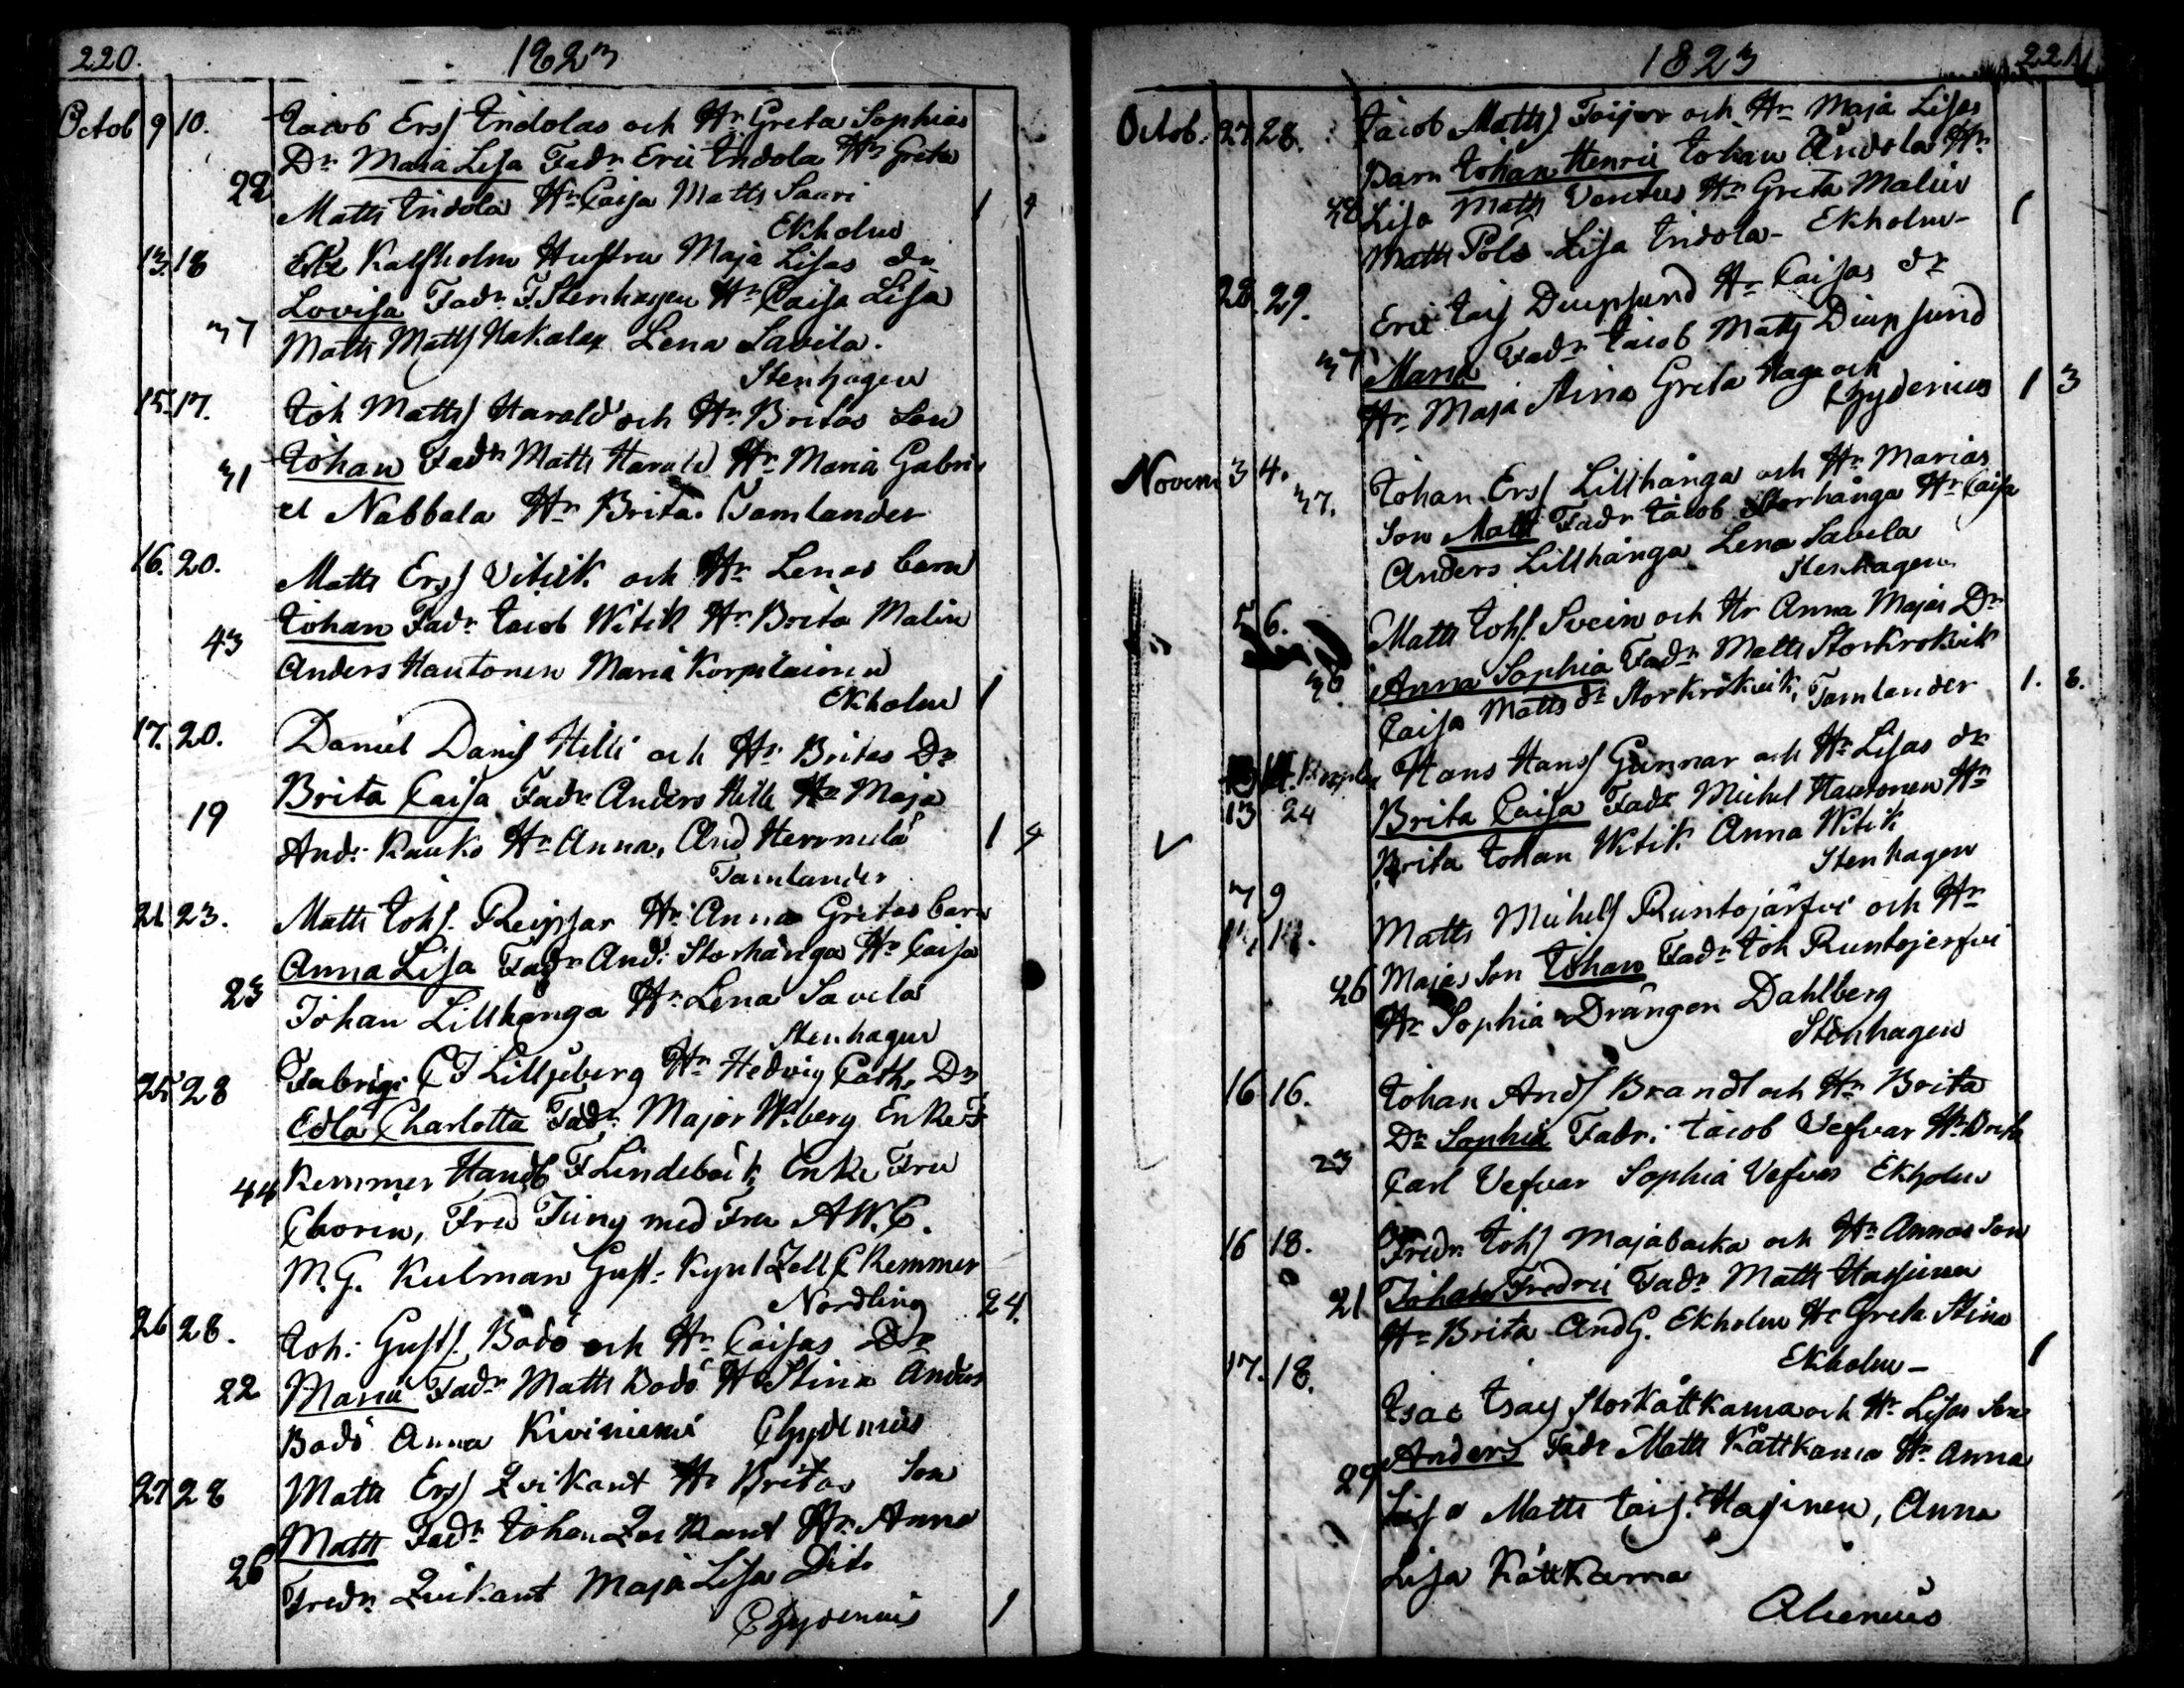 220. 1823
Octob 9 10. Jacob Ersſ Indolas och Hr Greta Sophias
Dr Maria Lisa Fadr Eric Indola Hr Greta
22 Matts Indola Hr Caisa Matts Saari 1 4
Ekholm
13. 18 Kalfholm Hustru Maja Lisas dr
Lovisa Fadr F. Stenhagen Hr Caisa Lisa
37 Matts Mattsſ Hakala Lena Savela.
Stenhagen
15. 17. Joh Mattsſ Harald och Hr Britas Son
Johan Fadr Matts Harald Hr Maria Gabri
31 el Nabbala Hr Brita. Tamlander
16. 20. Matts Ersſ Vitick och Hr Lenas barn
Johan Fadr Jacob Witik Hr Brita Malin
43 Anders Hautonen Maria Korpilainen
Ekholm 1
17. 20. Daniel Danſ Hilli och Hr Britas Dr
Brita Caisa Fadr Anders Hilli Hr Maja
19 Andr Kauko Hr Anna, And Hermula 1 4
Tamlander
21. 23. Matts Johſ. Reipsar Hr Anna Gretas barn
Anna Lisa Fadr And: Storhånga Hr Caisa
23 Johan Lillhånga Hr Lena Savela
Stenhagen
25 28 Fabriqr C J Lilljeberg Hr Hedvig Cath. Dr
Edla Charlotta Fadr Major Wberg Enke F
44 Kemmer Handl F Lindebäck Enke Fru
Chorin, Fru Jung med Fru A W. C.
M. G. Kulman Gust. Kyntzell C Kemmer
Nordling 24.
26 28. Joh: Gustſ. Bodö och Hr Caisas Dr
22 Maria Fadr Matts Bodö Hr Stina Anders
Bodö Anna Kiviniemi Chydenius
27 28 Matts Ersſ Qvikant Hr Britas Son
Matts Fadr Johan Qvikant Hr Anna
26 Fredr Qvikant Maja Lisa Dito
Chydenius 1
1823 221
Octob. 27. 28. Jacob Mattsſ Toijar och Hr Maja Lisas
Barn Johan Henric Johan Åndola Hr
Lisa Matts Ventus Hr Greta Malin 1
Matts Pole Lisa Indola - Ekholm -
28. 29. Eric Jacſ Diupsund Hr Caisas dr
37 Maria Fadr Jacob Matts Diupsund
Hr Maja Stina Greta Haga och
Chydenius 1 3
Novem 3 4. Johan Ersſ Lillhånga och Hr Marias
37. Son Matts Fadr Jacob Storhånga Hr Caisa
Anders Lillhånga Lena Savela
Stenhagen
5 6. Matts Johſ. Svein och Hr Anna Majas Dr
Anna Sophia Fadr Matts Storkrokvik
Caisa Matts dr Storkrokvik, Tamlander 1. 8.
Hans Hansſ Gunnar och Hr Lisas dr
13 24 Brita Caisa Fadr Michel Hautonen Hr
Brita Johan Witik Anna Witik
Stenhagen
7 9 Matts Michelsſ Runtojärfvi och Hr
26 Majas Son Johan Fadr Joh Runtojerfvi
Hr Sophia Drängen Dahlberg
Stenhagen
16 16. Johan Andſ Brandt och Hr Brita
Dr Sophia Fadr: Jacob Vefvar Hr Brita
23 Carl Vefvar Sophia Vefvar Ekholm
16 18. Fredr Johſ Majabacka och Hr Annas Son
21 Johan Fredric Fadr Matts Hassinen
Hr Brita And G. Ekholm Hr Greta Stina
Ekholm - 1
17. 18. Isac Isacſ Storkåttkama och Hr Lisas Son
Anders Fadr Matts Kåttkama Hr Anna
29 Lisa Matts Jacſ. Hassinen, Anna
Lisa Kåttkama
Alcenius